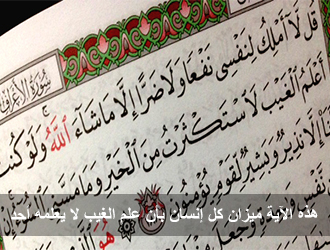 سُورَةُ الأَعْرَافِ
قُل لَّا أَمْلِكُ لِنَفْسِى نَفْعًا وَلَا ضَرًّا إِلَّا مَا شَآءَ ٱللَّهُ وَلَوْ كُنتُ
أَعْلَمُ ٱلْغَيْبَ لَٱسْتَكْثَرْتُ مِنَ ٱلْخَيْرِ وَمَا مَسَّنِىَ
إِلَّا نَذِيرٌ وَبَشِيرٌ لِّقَوْمٍ يُؤْمِنُونَ
هذه الآية ميزان كل إنسان بأن علم الغيب لا يعلمه أحد
وَجَعَلَ